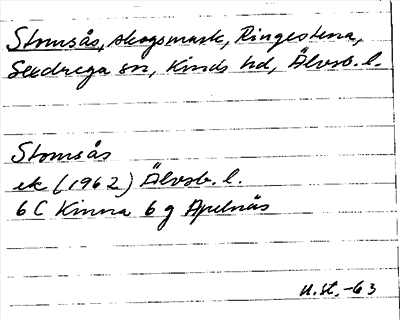 Stomsås, skogsmark, Ringestena,
Sexdrega sn, Kinds hd, Älvsb. l.
Stomsås
ek (1962) Älvsb. l.
6 C Kinna 6 g Apelnäs
U. St. -63